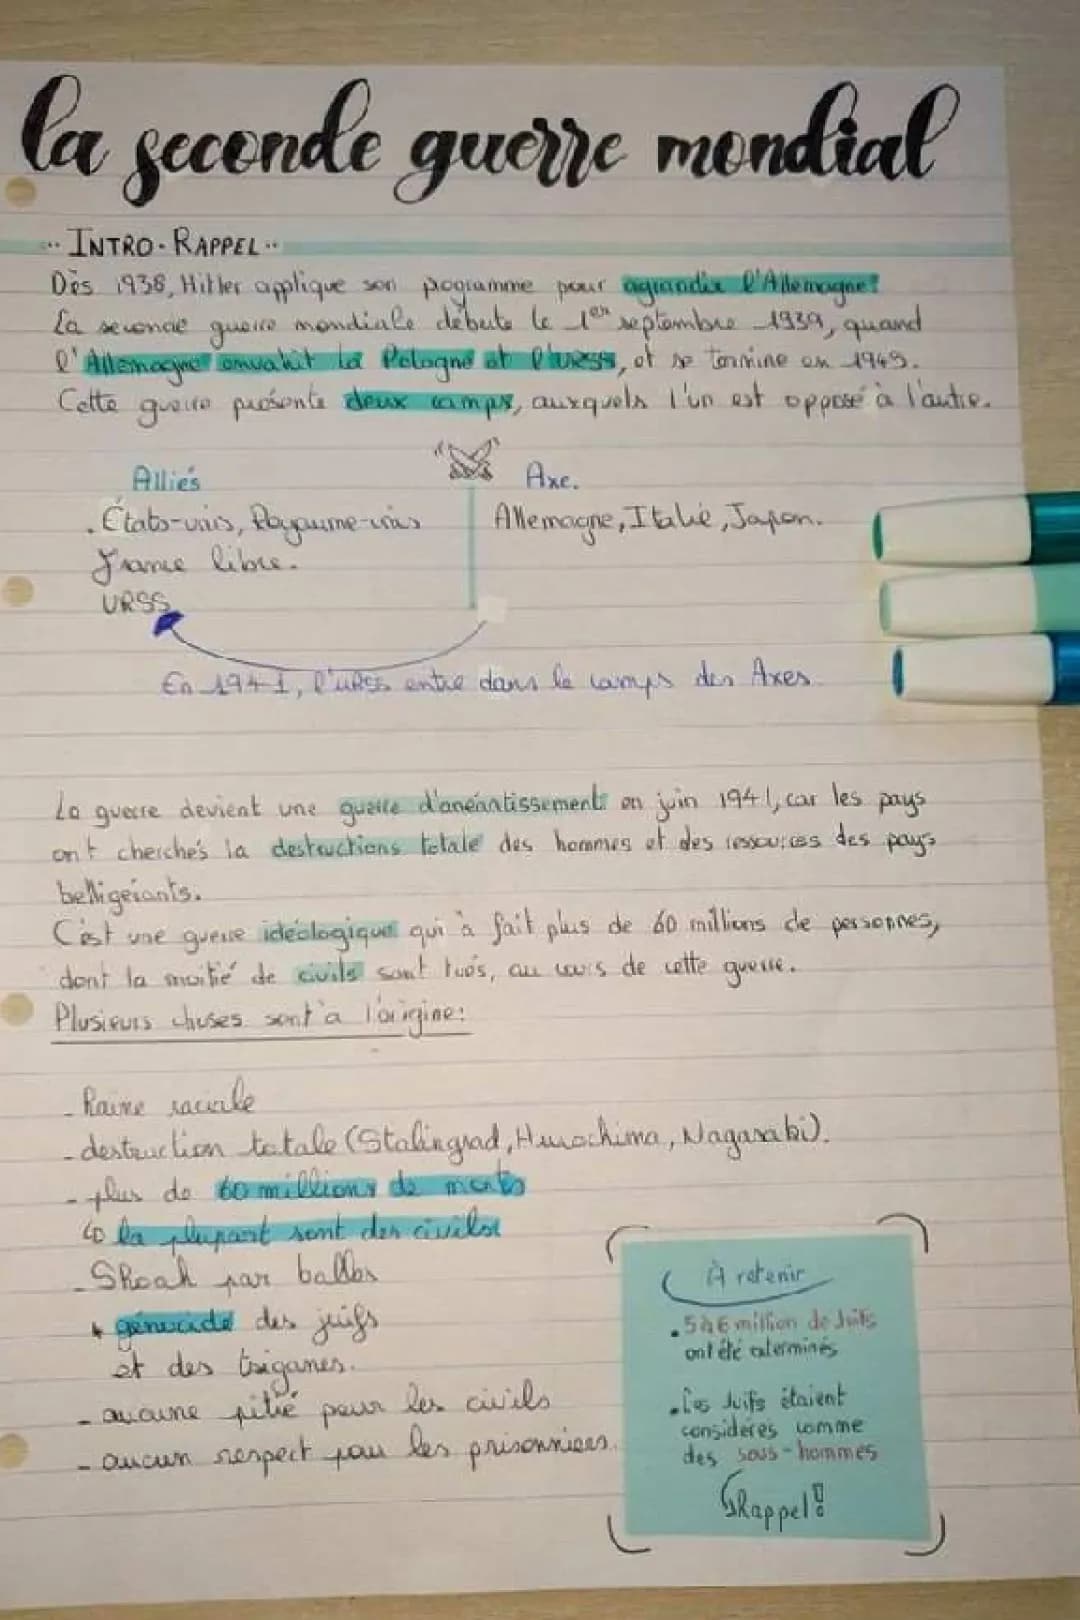 la seconde guerre mondial
INTRO-RAPPEL
Dès 1938, Hitler applique son pogramme pour agrandir l'Allemagne!
La seconde guerre mondiale débute le 1er septembre 1939, quand
l'Allemagne envahit la Pologne et l'URSS, et se termine en 1945.
Cette guerre présente deux camps, auxquels l'un est opposé à l'autre.
Alliés
Axe.
. États-unis, Royaume-unis
France libre.
URSS
Allemagne, Italie, Japon.
En 1941, l'URSS entre dans le camps des Axes.
La guerre devient une guerre d'anéantissement en juin 1941, car les pays
ont cherchés la destructions totale des hommes et des ressources des pays
belligérants.
C'est une guerre idéologique qui à fait plus de 60 millions de personnes,
dont la moitié de civils sont tués, au cours de cette guerre.
Plusieurs choses sont à l'origine:
- haine raciale
- destruction totale (Stalingrad, Hiroshima, Nagasaki).
- plus de 60 millions de morts
la plupart sont des civils
- Shoah par balles
génocide des juifs
et des tsiganes.
- aucune pitié pour les civils
- aucun respect pour les prisonniers.
À retenir
. 5 à 6 million de Juifs
ont été exterminés
. Les Juifs étaient
considérés comme
des sous-hommes
Rappel!